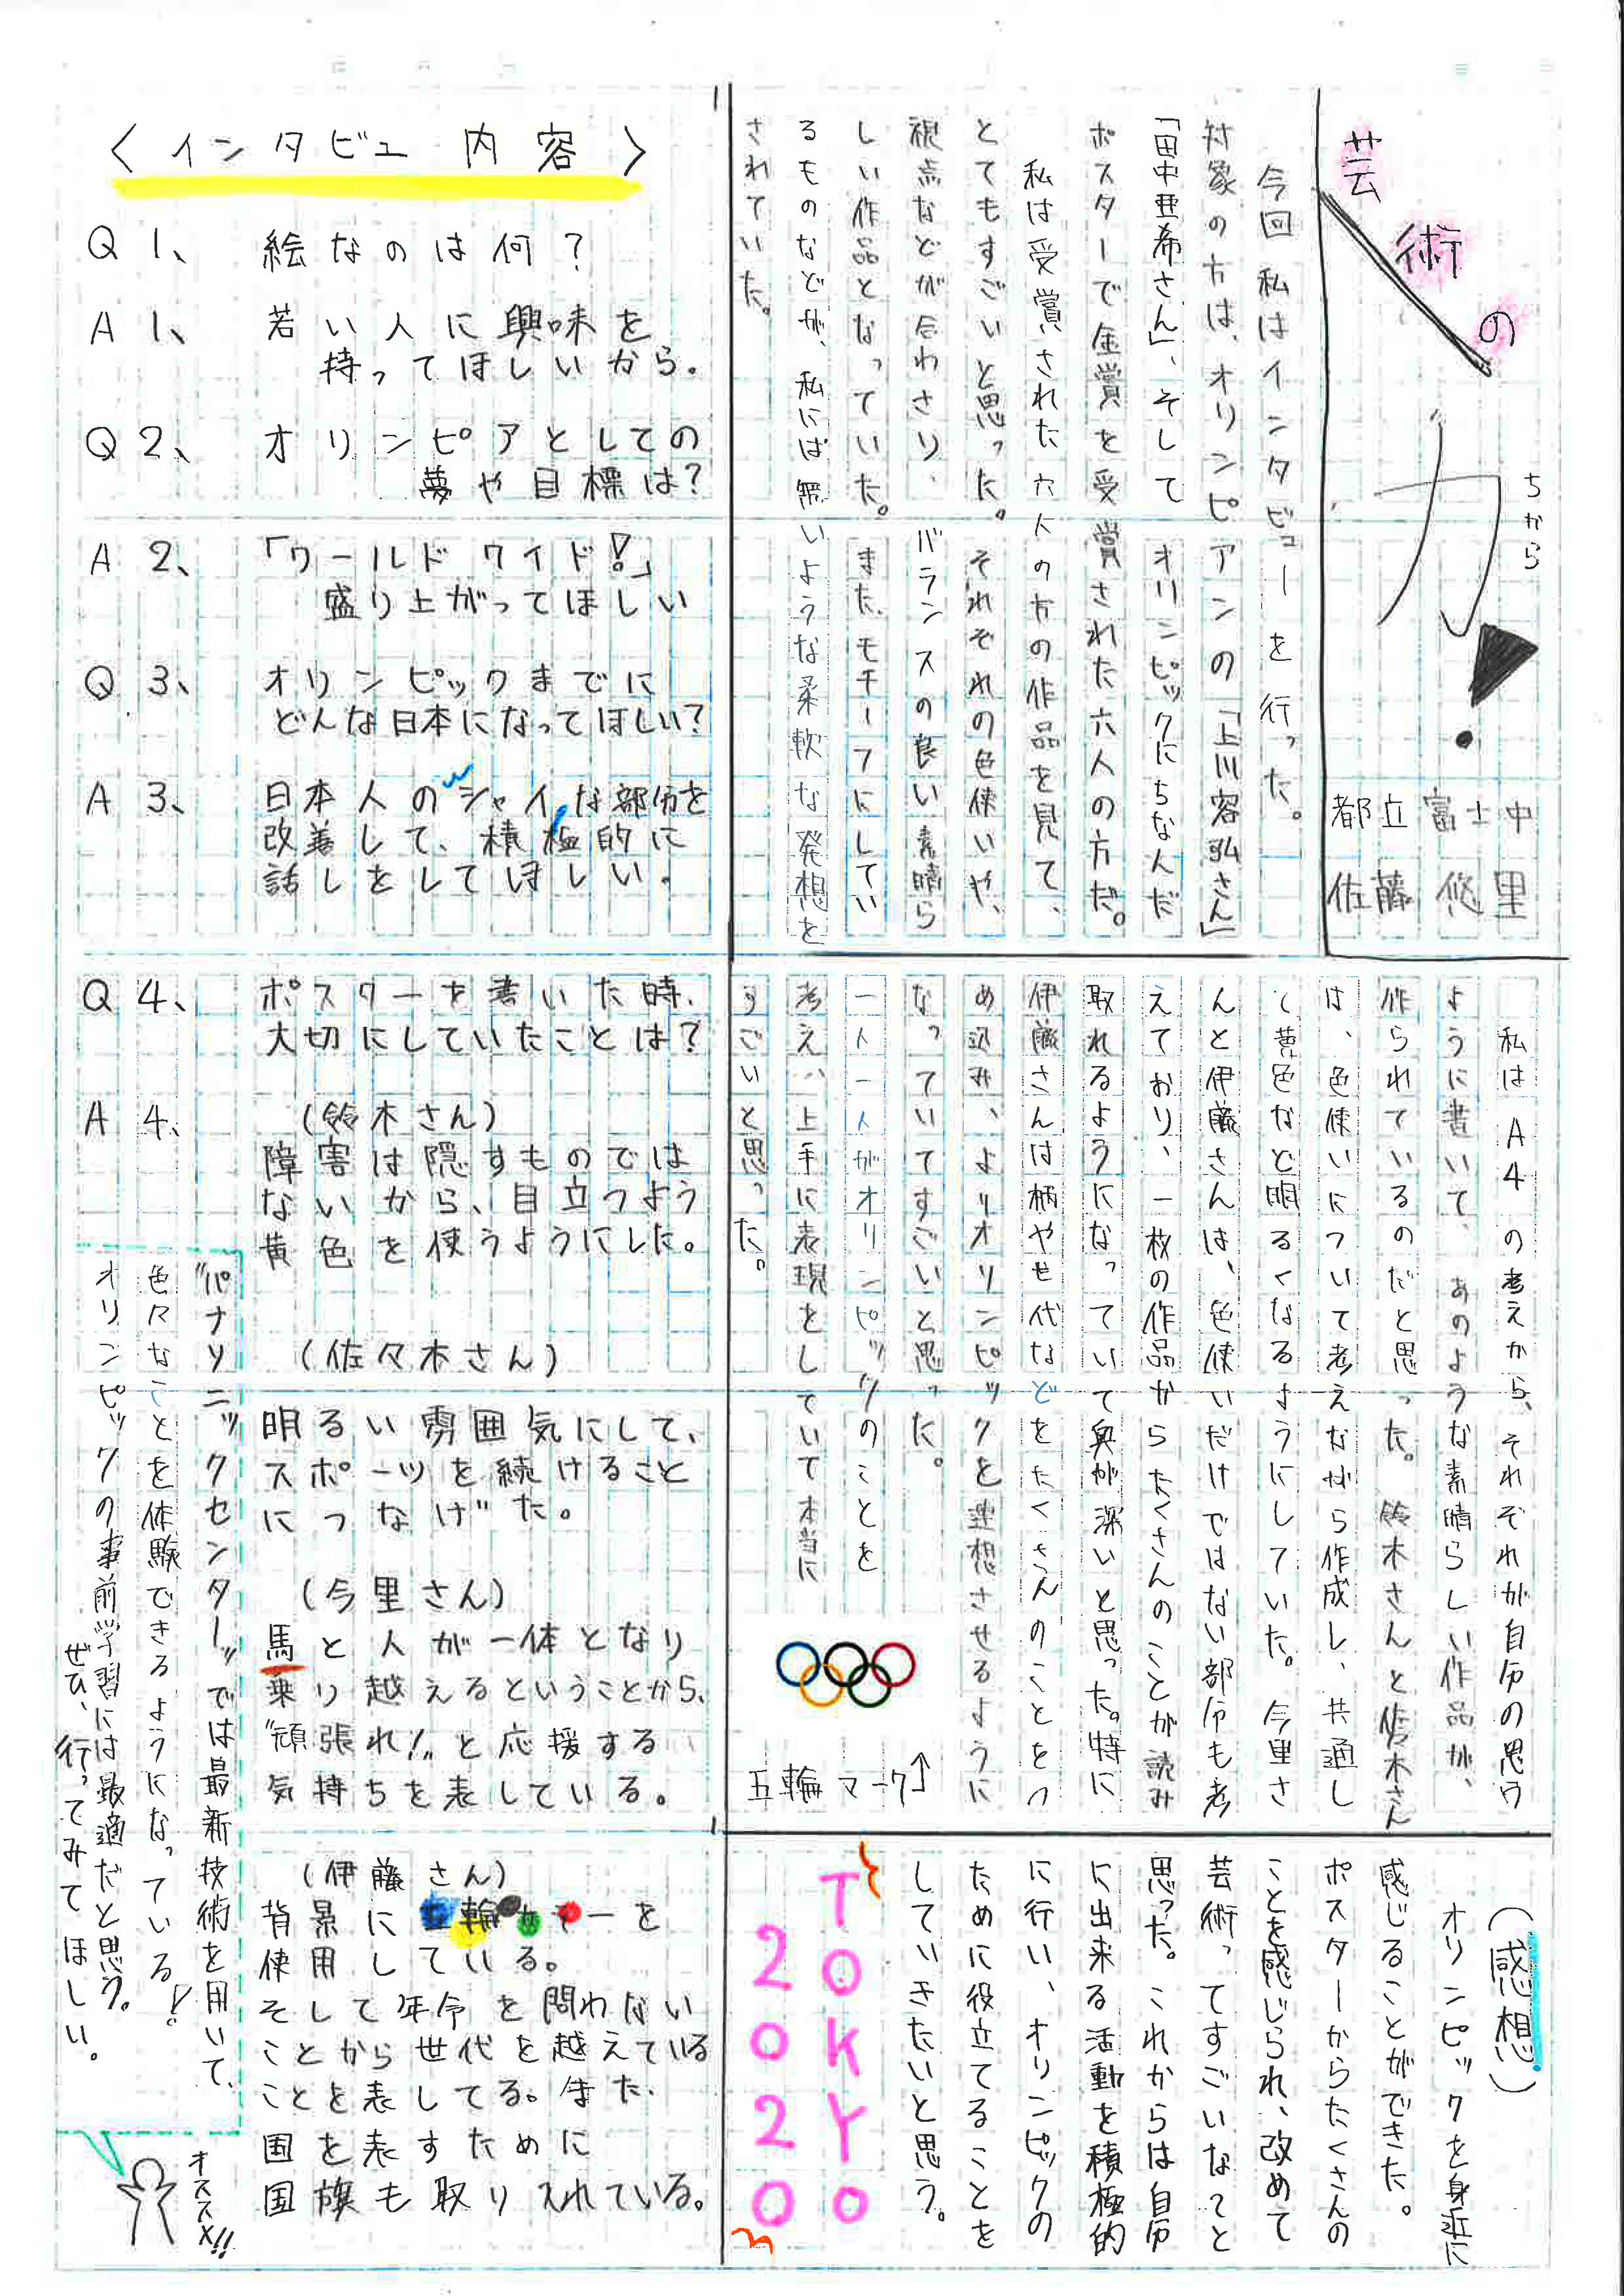 芸術の
力
ちから
都立富士中
佐藤悠里
今回私はインタビューを行った。
対象の方は、オリンピアンの「上川容弘さん」
「田中亜希さん」、そしてオリンピックにちなんだ
ポスターで金賞を受賞された六人の方だ。
私は受賞された六人の方の作品を見て、
とてもすごいと思った。それぞれの色使いや、
視点などが合わさり、バランスの良い素晴ら
しい作品となっていた。また、モチーフにしてい
るものなどが、私には無いような柔軟な発想を
されていた。
私はA4の考えから、それぞれが自分の思う
ように書いて、あのような素晴らしい作品が、
作られているのだと思った。鈴木さんと佐々木さん
は、色使いについて考えながら作成し、共通し
て黄色など明るくなるようにしていた。今里さ
んと伊藤さんは、色使いだけではない部分も考
えており、一枚の作品からたくさんのことが読み
取れるようになっていて奥が深いと思った。特に
伊藤さんは柄やせ代などをたくさんのことをつ
め込み、よりオリンピックを連想させるように
なっていてすごいと思った。
一人一人がオリンピックのことを
考え、上手に表現をしていて本当に
すごいと思った。
五輪マーク↑
(感想)
オリンピックを身近に
感じることができた。
ポスターからたくさんの
ことを感じられ、改めて
芸術ってすごいなってと
思った。これからは自分
に出来る活動を積極的
に行い、オリンピックの
ために役立てることを
していきたいと思う。
TOKYO
2020
〈インタビュー内容〉
Q1、絵なのは何？
A1、若い人に興味を
持ってほしいから。
Q2、オリンピアとしての
夢や目標は？
A2、「ワールドワイド！」
盛り上がってほしい
Q3、オリンピックまでに
どんな日本になってほしい？
A3、日本人のシャイな部分を
改善して、積極的に
話しをしてほしい。
Q4、ポスターを書いた時、
大切にしていたことは？
A4、(鈴木さん)
障害は隠すものでは
ないから、目立つよう
黄色を使うようにした。
(佐々木さん)
明るい雰囲気にして、
スポーツを続けること
につなげた。
(今里さん)
馬と人が一体となり
乗り越えるということから、
"頑張れ！"と応援する
気持ちを表している。
(伊藤さん)
背景に五輪カラーを
使用している。
そして年令を問わない
ことから世代を越えている
ことを表してる。また、
国を表すために
国旗も取り入れている。
"パナソニックセンター"では最新技術を用いて、
色々なことを体験できるようになっている！
オリンピックの事前学習には最適だと思う。
ぜひ、行ってみてほしい。
オススメ!!